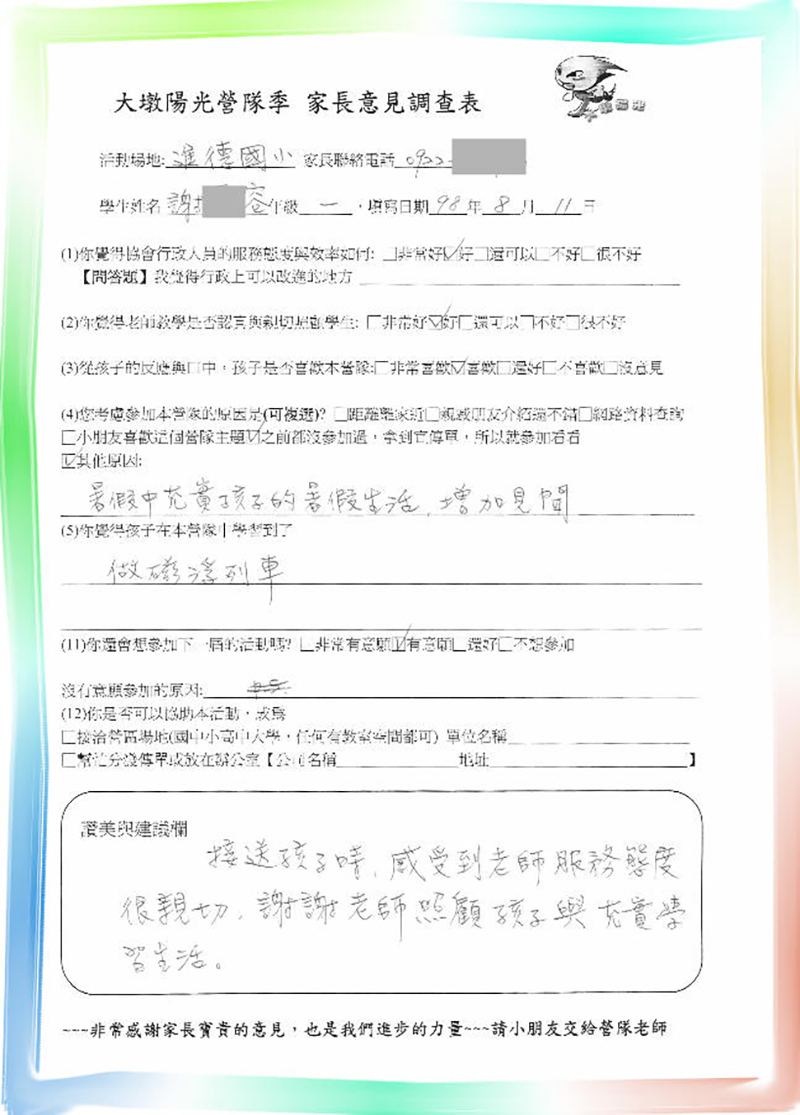 大墩陽光營隊季 家長意見調查表
大墩陽光
活動場地: 進德國小 家長聯絡電話 0922-
學生姓名 謝 容 年級 一 ，填寫日期 98 年 8 月 11 日
(1)你覺得協會行政人員的服務態度與效率如何: □非常好☑好□還可以□不好□很不好
【問答題】我覺得行政上可以改進的地方
(2)你覺得老師教學是否認真與親切照顧學生: □非常好☑好□還可以□不好□很不好
(3)從孩子的反應與口中，孩子是否喜歡本營隊:□非常喜歡☑喜歡□還好□不喜歡□沒意見
(4)您考慮參加本營隊的原因是(可複選)? □距離離家近□親戚朋友介紹還不錯□網路資料查詢
□小朋友喜歡這個營隊主題☑之前都沒參加過，拿到宣傳單，所以就參加看看
☑其他原因:
暑假中充實孩子的暑假生活，增加見聞
(5)你覺得孩子在本營隊中學習到了
做磁浮列車
(11)你還會想參加下一屆的活動嗎? □非常有意願☑有意願□還好□不想參加
沒有意願參加的原因:
(12)你是否可以協助本活動，成為
□接洽營區場地(國中小高中大學，任何有教室空間都可) 單位名稱
□幫忙分發傳單或放在辦公室【公司名稱 地址 】
讚美與建議欄
接送孩子時，感受到老師服務態度
很親切，謝謝老師照顧孩子與充實學
習生活。
~~~非常感謝家長寶貴的意見，也是我們進步的力量~~~請小朋友交給營隊老師